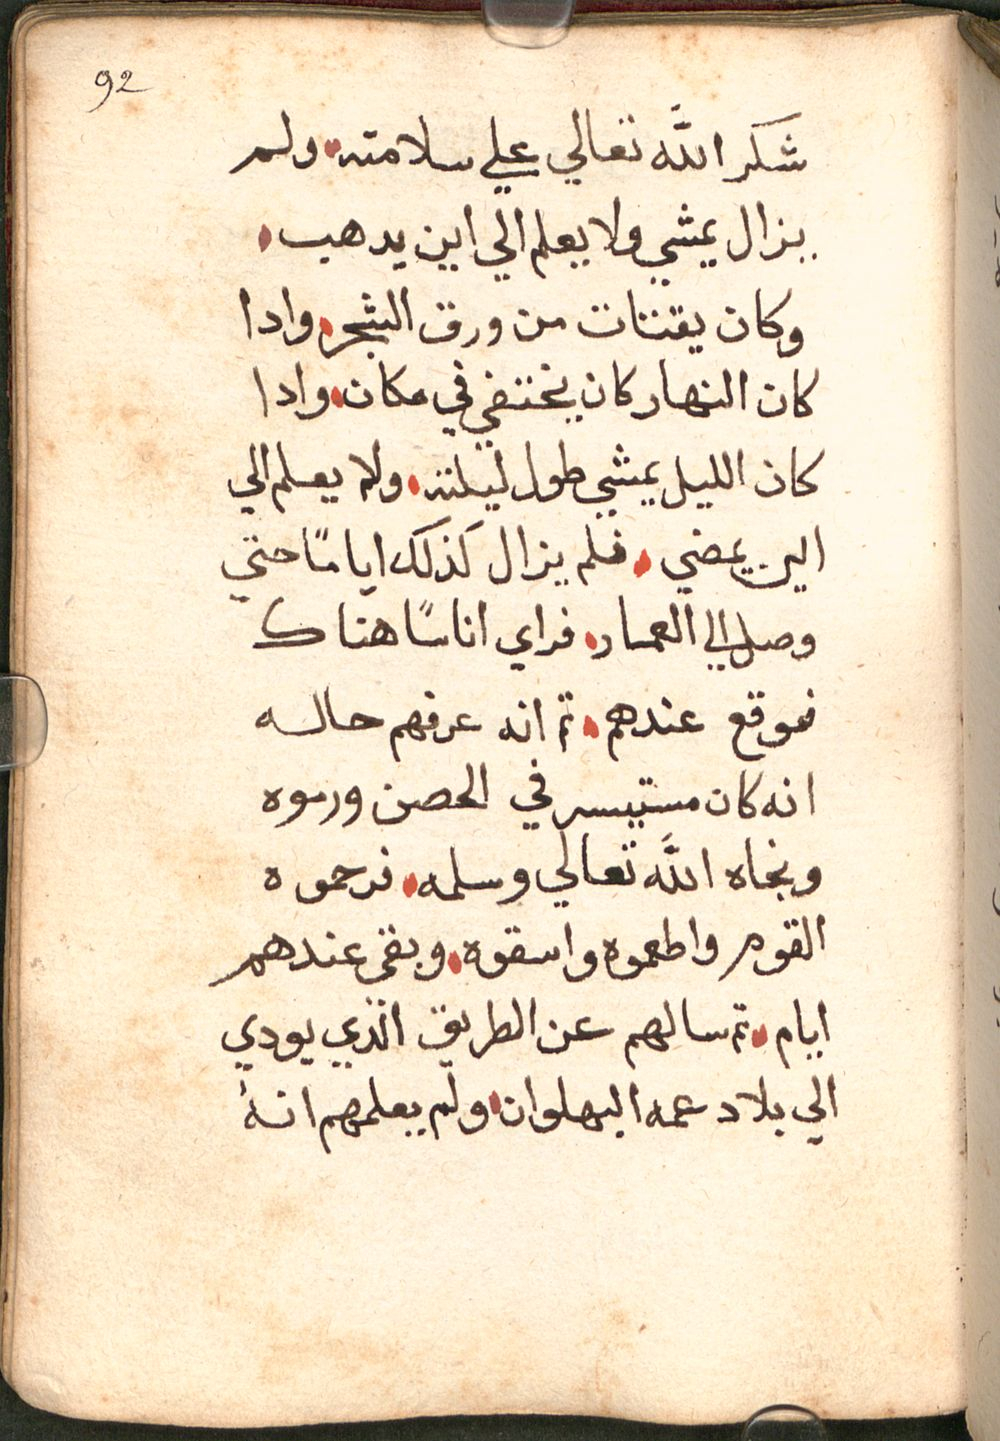 92
شكر اللَّه تعالي علي سلامته، ولم
يزال يمشي ولا يعلم الي اين يدهب،
وكان يقتات من ورق الشجر، وادا
كان النهار كان يختفي في مكان، وادا
كان الليل يمشي طول ليلته، ولا يعلم الي
اين يمضي، فلم يزال كذلك ايامًا حتي
وصل الي العمار، فراي اناسًا هناك
فوقع عندهم، تم انه عرفهم حاله
انه كان مستيسر في الحصن ورموه
ونجاه اللَّه تعالي وسلمه، فرحموه
القوم واطعموه واسقوه، وبقي عندهم
ايام، تم سالهم عن الطريق الذي يودي
الي بلاد عمه البهلوان، ولم يعلمهم انه